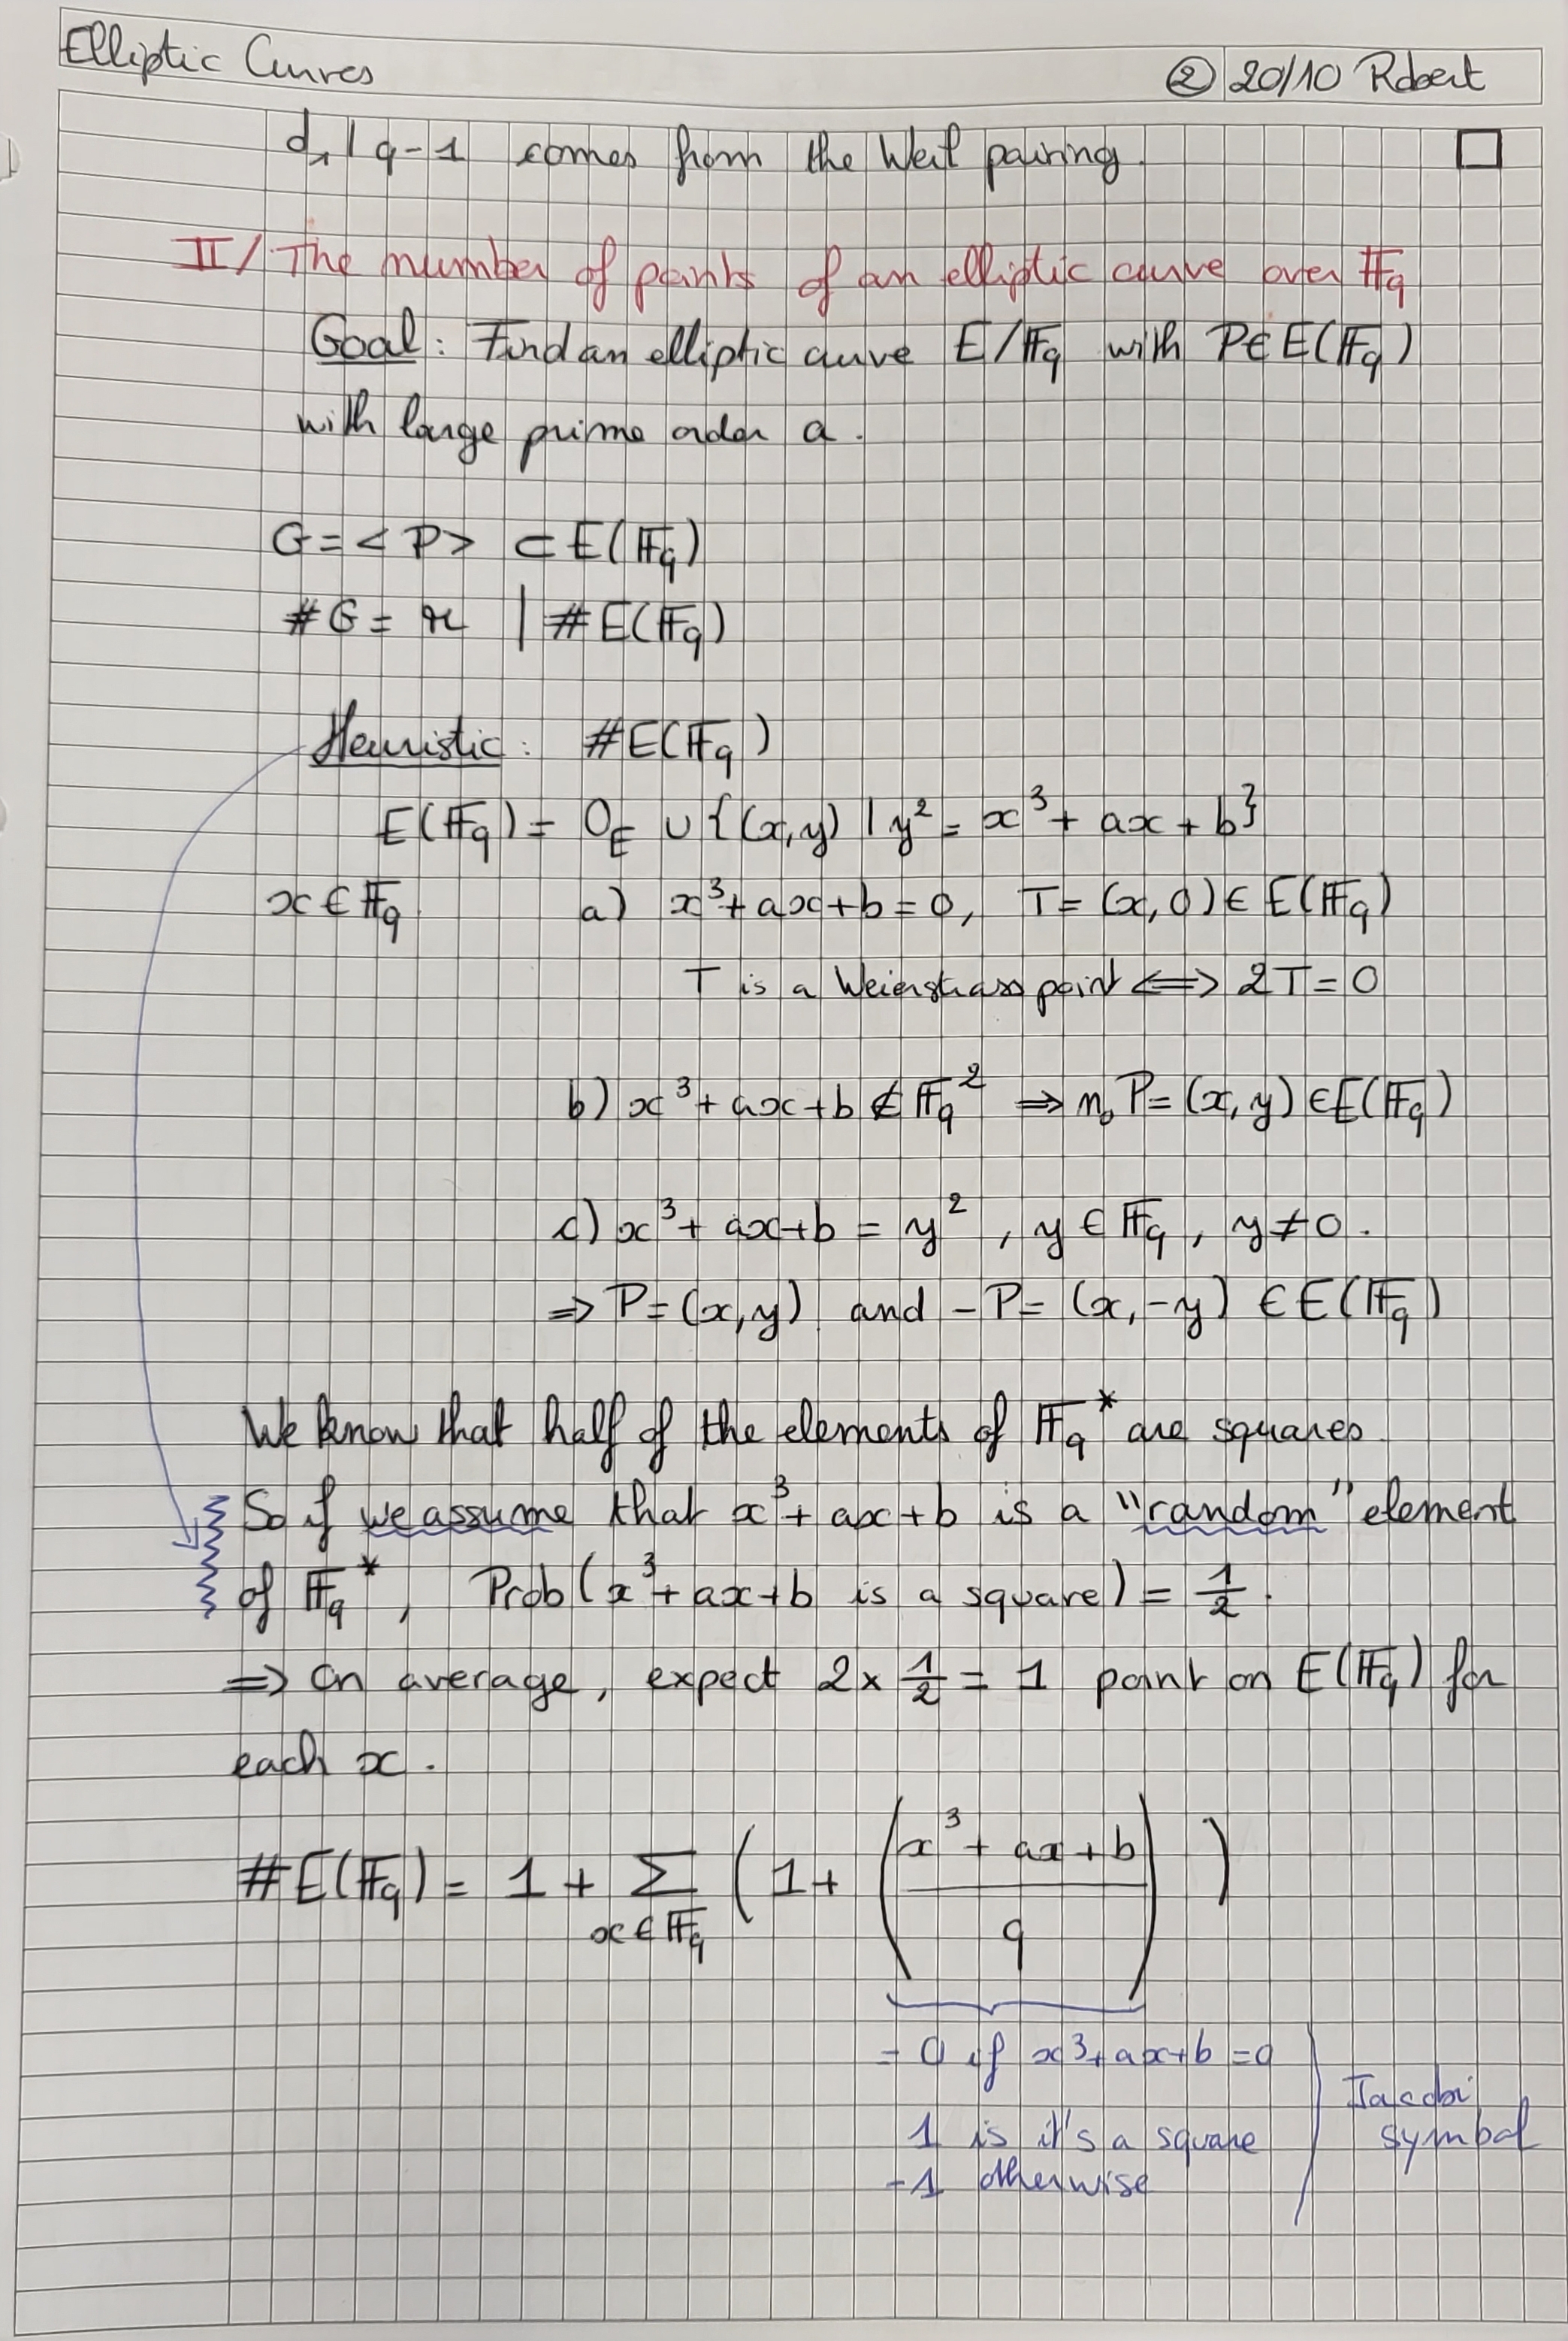 Elliptic Curves ② 20/10 Robert
d₁ | q-1 comes from the Weil pairing. □
II/ The number of points of an elliptic curve over 𝔽q
Goal: Find an elliptic curve E/𝔽q with P∈E(𝔽q)
with large prime order a.
G = <P> ⊂ E(𝔽q)
#G = r | #E(𝔽q)
Heuristic: #E(𝔽q)
E(𝔽q) = O_E ∪ {(x,y) | y² = x³ + ax + b}
x ∈ 𝔽q a) x³+ax+b = 0, T = (x,0) ∈ E(𝔽q)
T is a Weierstrass point ⟺ 2T = 0
b) x³+ax+b ∉ 𝔽q² ⟹ no P = (x,y) ∈ E(𝔽q)
c) x³+ax+b = y², y ∈ 𝔽q, y≠0.
⟹ P = (x,y) and -P = (x,-y) ∈ E(𝔽q)
We know that half of the elements of 𝔽q* are squares
So if we assume that x³+ax+b is a "random" element
of 𝔽q*, Prob(x³+ax+b is a square) = 1/2.
⟹ on average, expect 2 × 1/2 = 1 point on E(𝔽q) for
each x.
#E(𝔽q) = 1 + Σ_{x∈𝔽q} (1 + ((x³+ax+b)/q))
= 0 if x³+ax+b = 0
Jacobi
1 is it's a square symbol
-1 otherwise